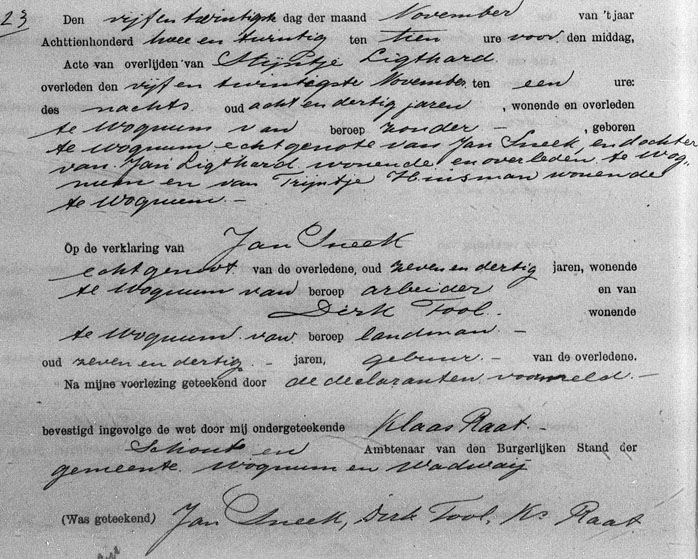 23 Den vijf en twintigste dag der maand November van 't jaar
Achttienhonderd twee en twintig ten tien ure voor den middag,
Acte van overlijden van Stijntje Ligthard
overleden den vijf en twintigste November ten een ure:
des nachts oud acht en dertig jaren, wonende en overleden
te Wognum van beroep zonder –, geboren
te Wognum echtgenote van Jan Sneek, en dochter
van Jan Ligthard wonende en overleden te Wog„
num en van Trijntje Huisman wonende
te Wognum. –
Op de verklaring van Jan Sneek
echtgenoot van de overledene, oud zeven en dertig jaren, wonende
te Wognum van beroep arbeider en van
Dirk Tool. wonende
te Wognum van beroep landman. –
oud zeven en dertig. – jaren, gebuur. – van de overledene.
Na mijne voorlezing geteekend door de declaranten voormeld. –
bevestigd ingevolge de wet door mij ondergeteekende Klaas Raat –
Schout en Ambtenaar van den Burgerlijken Stand der
gemeente Wognum en Wadway
(Was geteekend) Jan Sneek, Dirk Tool, Ks Raat.